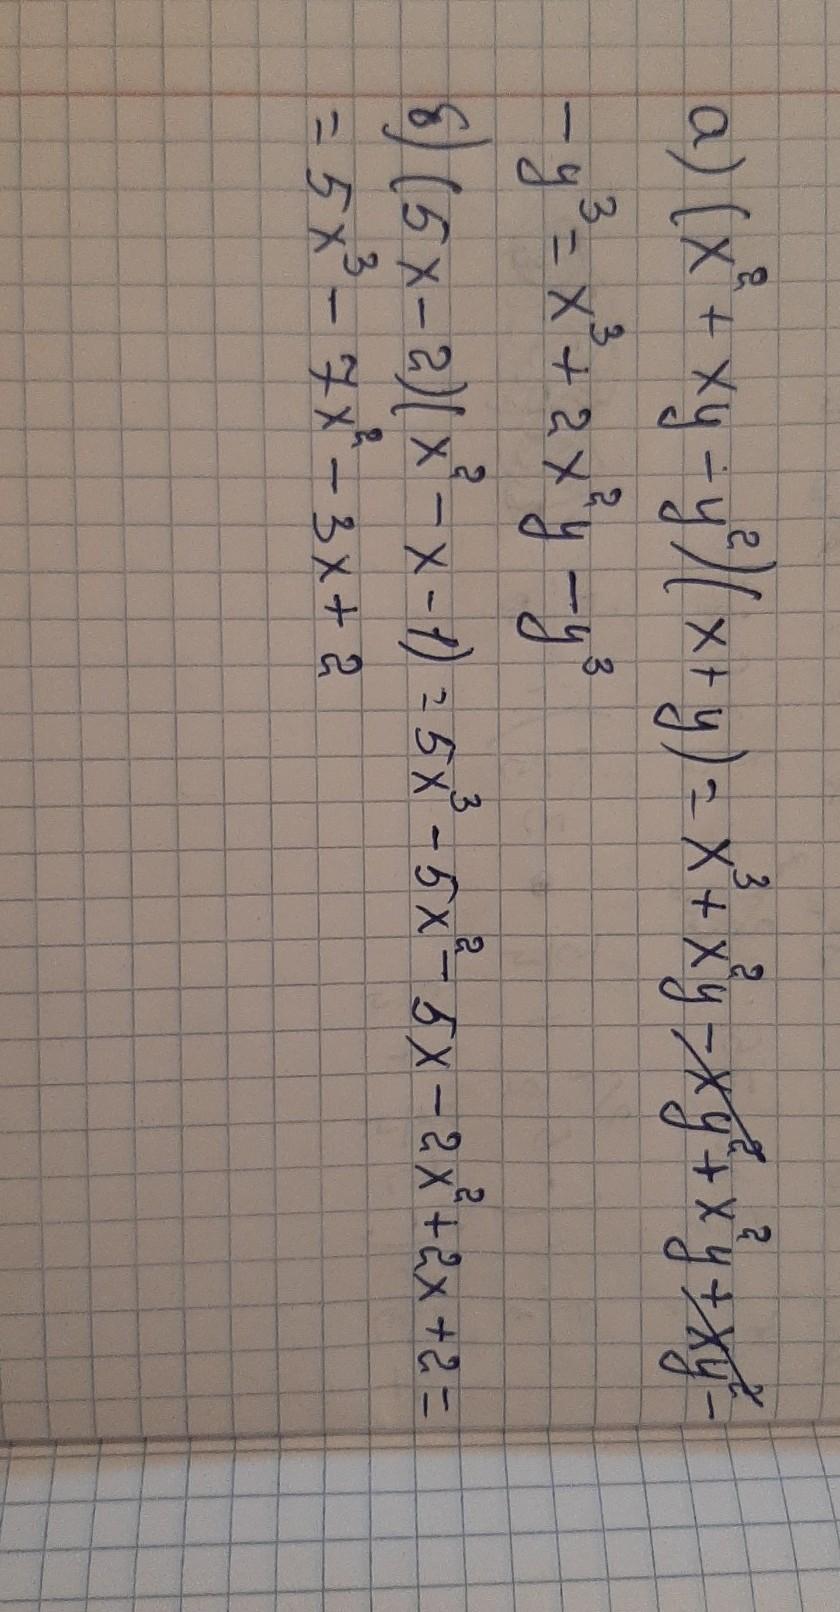 а) (x² + xy - y²)(x + y) = x³ + x²y - xy² + x²y + xy² -
- y³ = x³ + 2x²y - y³
б) (5x - 2)(x² - x - 1) = 5x³ - 5x² - 5x - 2x² + 2x + 2 =
= 5x³ - 7x² - 3x + 2